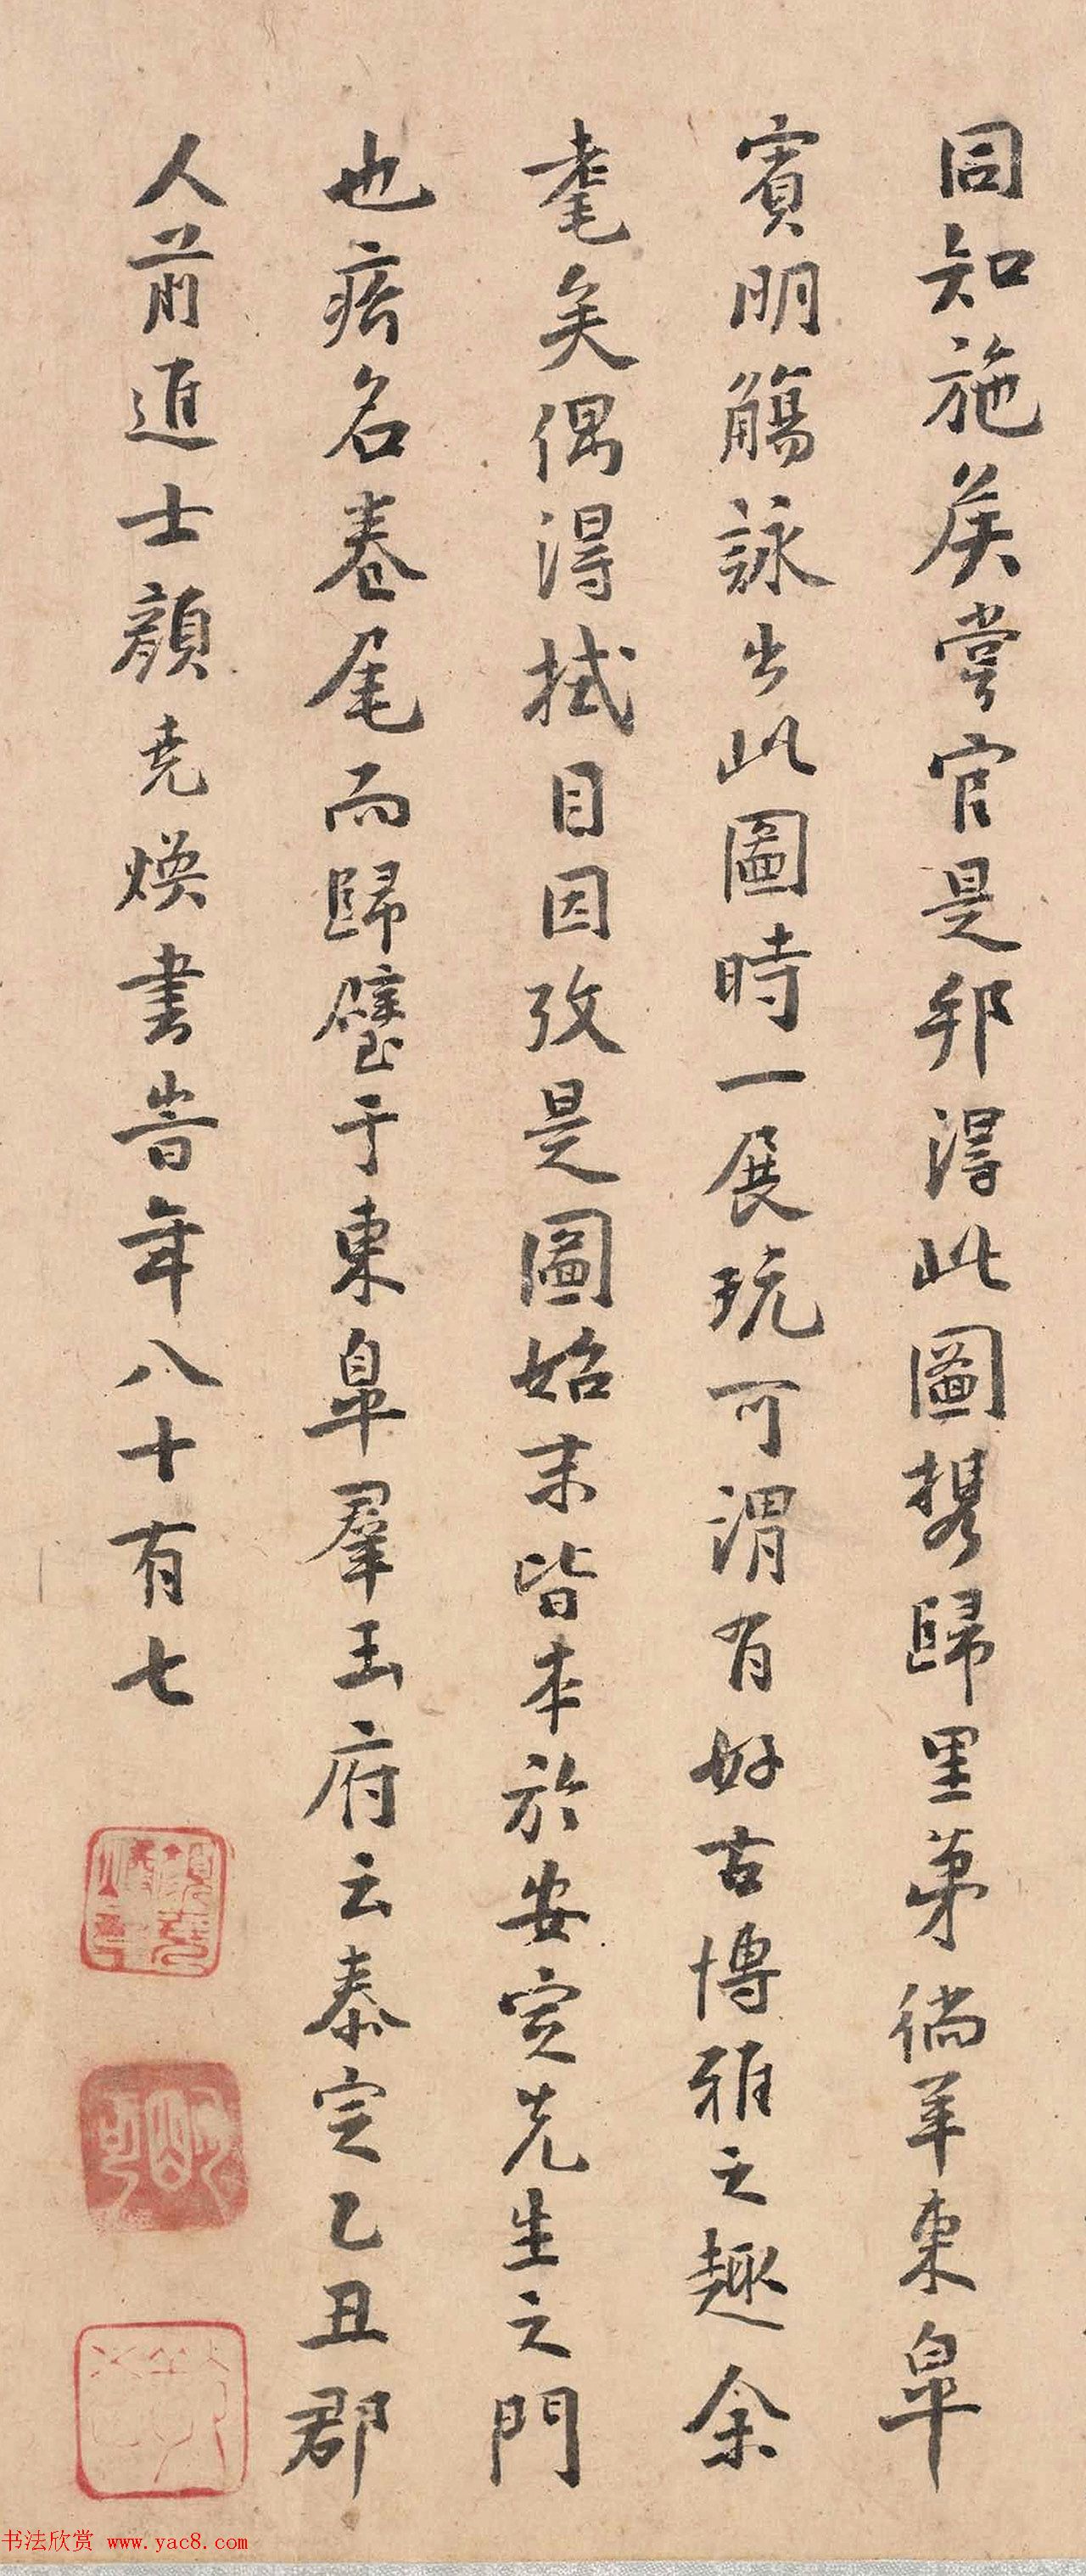 同知施矦嘗官是邦得此圖携歸里第徜羊東皐
賓朋觴詠出此圖時一展玩可謂有好古博雅之趣余
耄矣偶得拭目因攷是圖始末皆本於安定先生之門
也㾗名卷尾而歸璧于東皐羣玉府云泰定乙丑郡
人前進士顔堯煥書旹年八十有七
书法欣赏 www.yac8.com